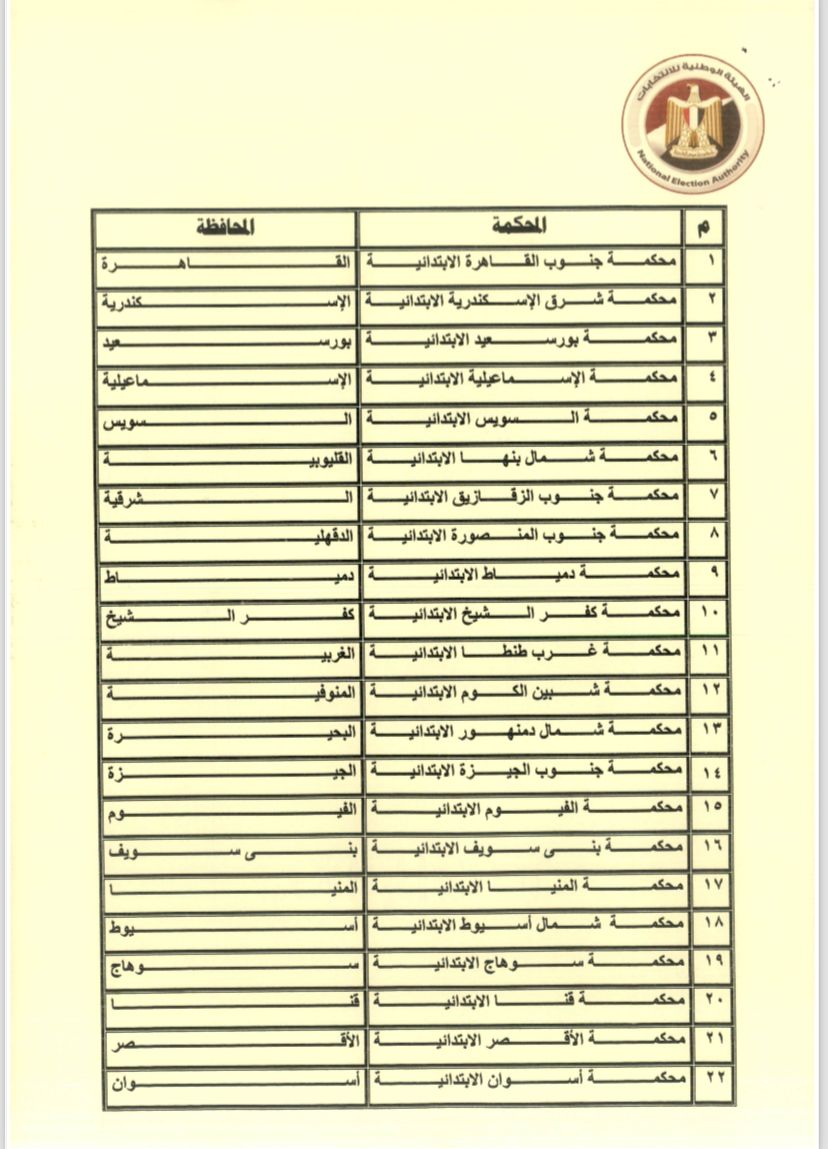 الهيئة الوطنية للانتخابات
National Election Authority
م المحكمة المحافظة
١ محكمة جنوب القاهرة الابتدائية القاهرة
٢ محكمة شرق الإسكندرية الابتدائية الإسكندرية
٣ محكمة بورسعيد الابتدائية بورسعيد
٤ محكمة الإسماعيلية الابتدائية الإسماعيلية
٥ محكمة السويس الابتدائية السويس
٦ محكمة شمال بنها الابتدائية القليوبية
٧ محكمة جنوب الزقازيق الابتدائية الشرقية
٨ محكمة جنوب المنصورة الابتدائية الدقهلية
٩ محكمة دمياط الابتدائية دمياط
١٠ محكمة كفر الشيخ الابتدائية كفر الشيخ
١١ محكمة غرب طنطا الابتدائية الغربية
١٢ محكمة شبين الكوم الابتدائية المنوفية
١٣ محكمة شمال دمنهور الابتدائية البحيرة
١٤ محكمة جنوب الجيزة الابتدائية الجيزة
١٥ محكمة الفيوم الابتدائية الفيوم
١٦ محكمة بنى سويف الابتدائية بنى سويف
١٧ محكمة المنيا الابتدائية المنيا
١٨ محكمة شمال أسيوط الابتدائية أسيوط
١٩ محكمة سوهاج الابتدائية سوهاج
٢٠ محكمة قنا الابتدائية قنا
٢١ محكمة الأقصر الابتدائية الأقصر
٢٢ محكمة أسوان الابتدائية أسوان